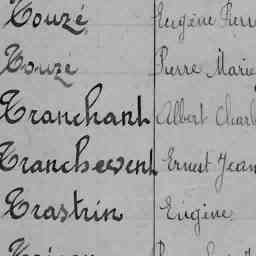 Touzé Eugène Pierre
Touzé Pierre Marie
Tranchant Albert Charl
Tranchevent Ernest Jean
Trastrin Eugène